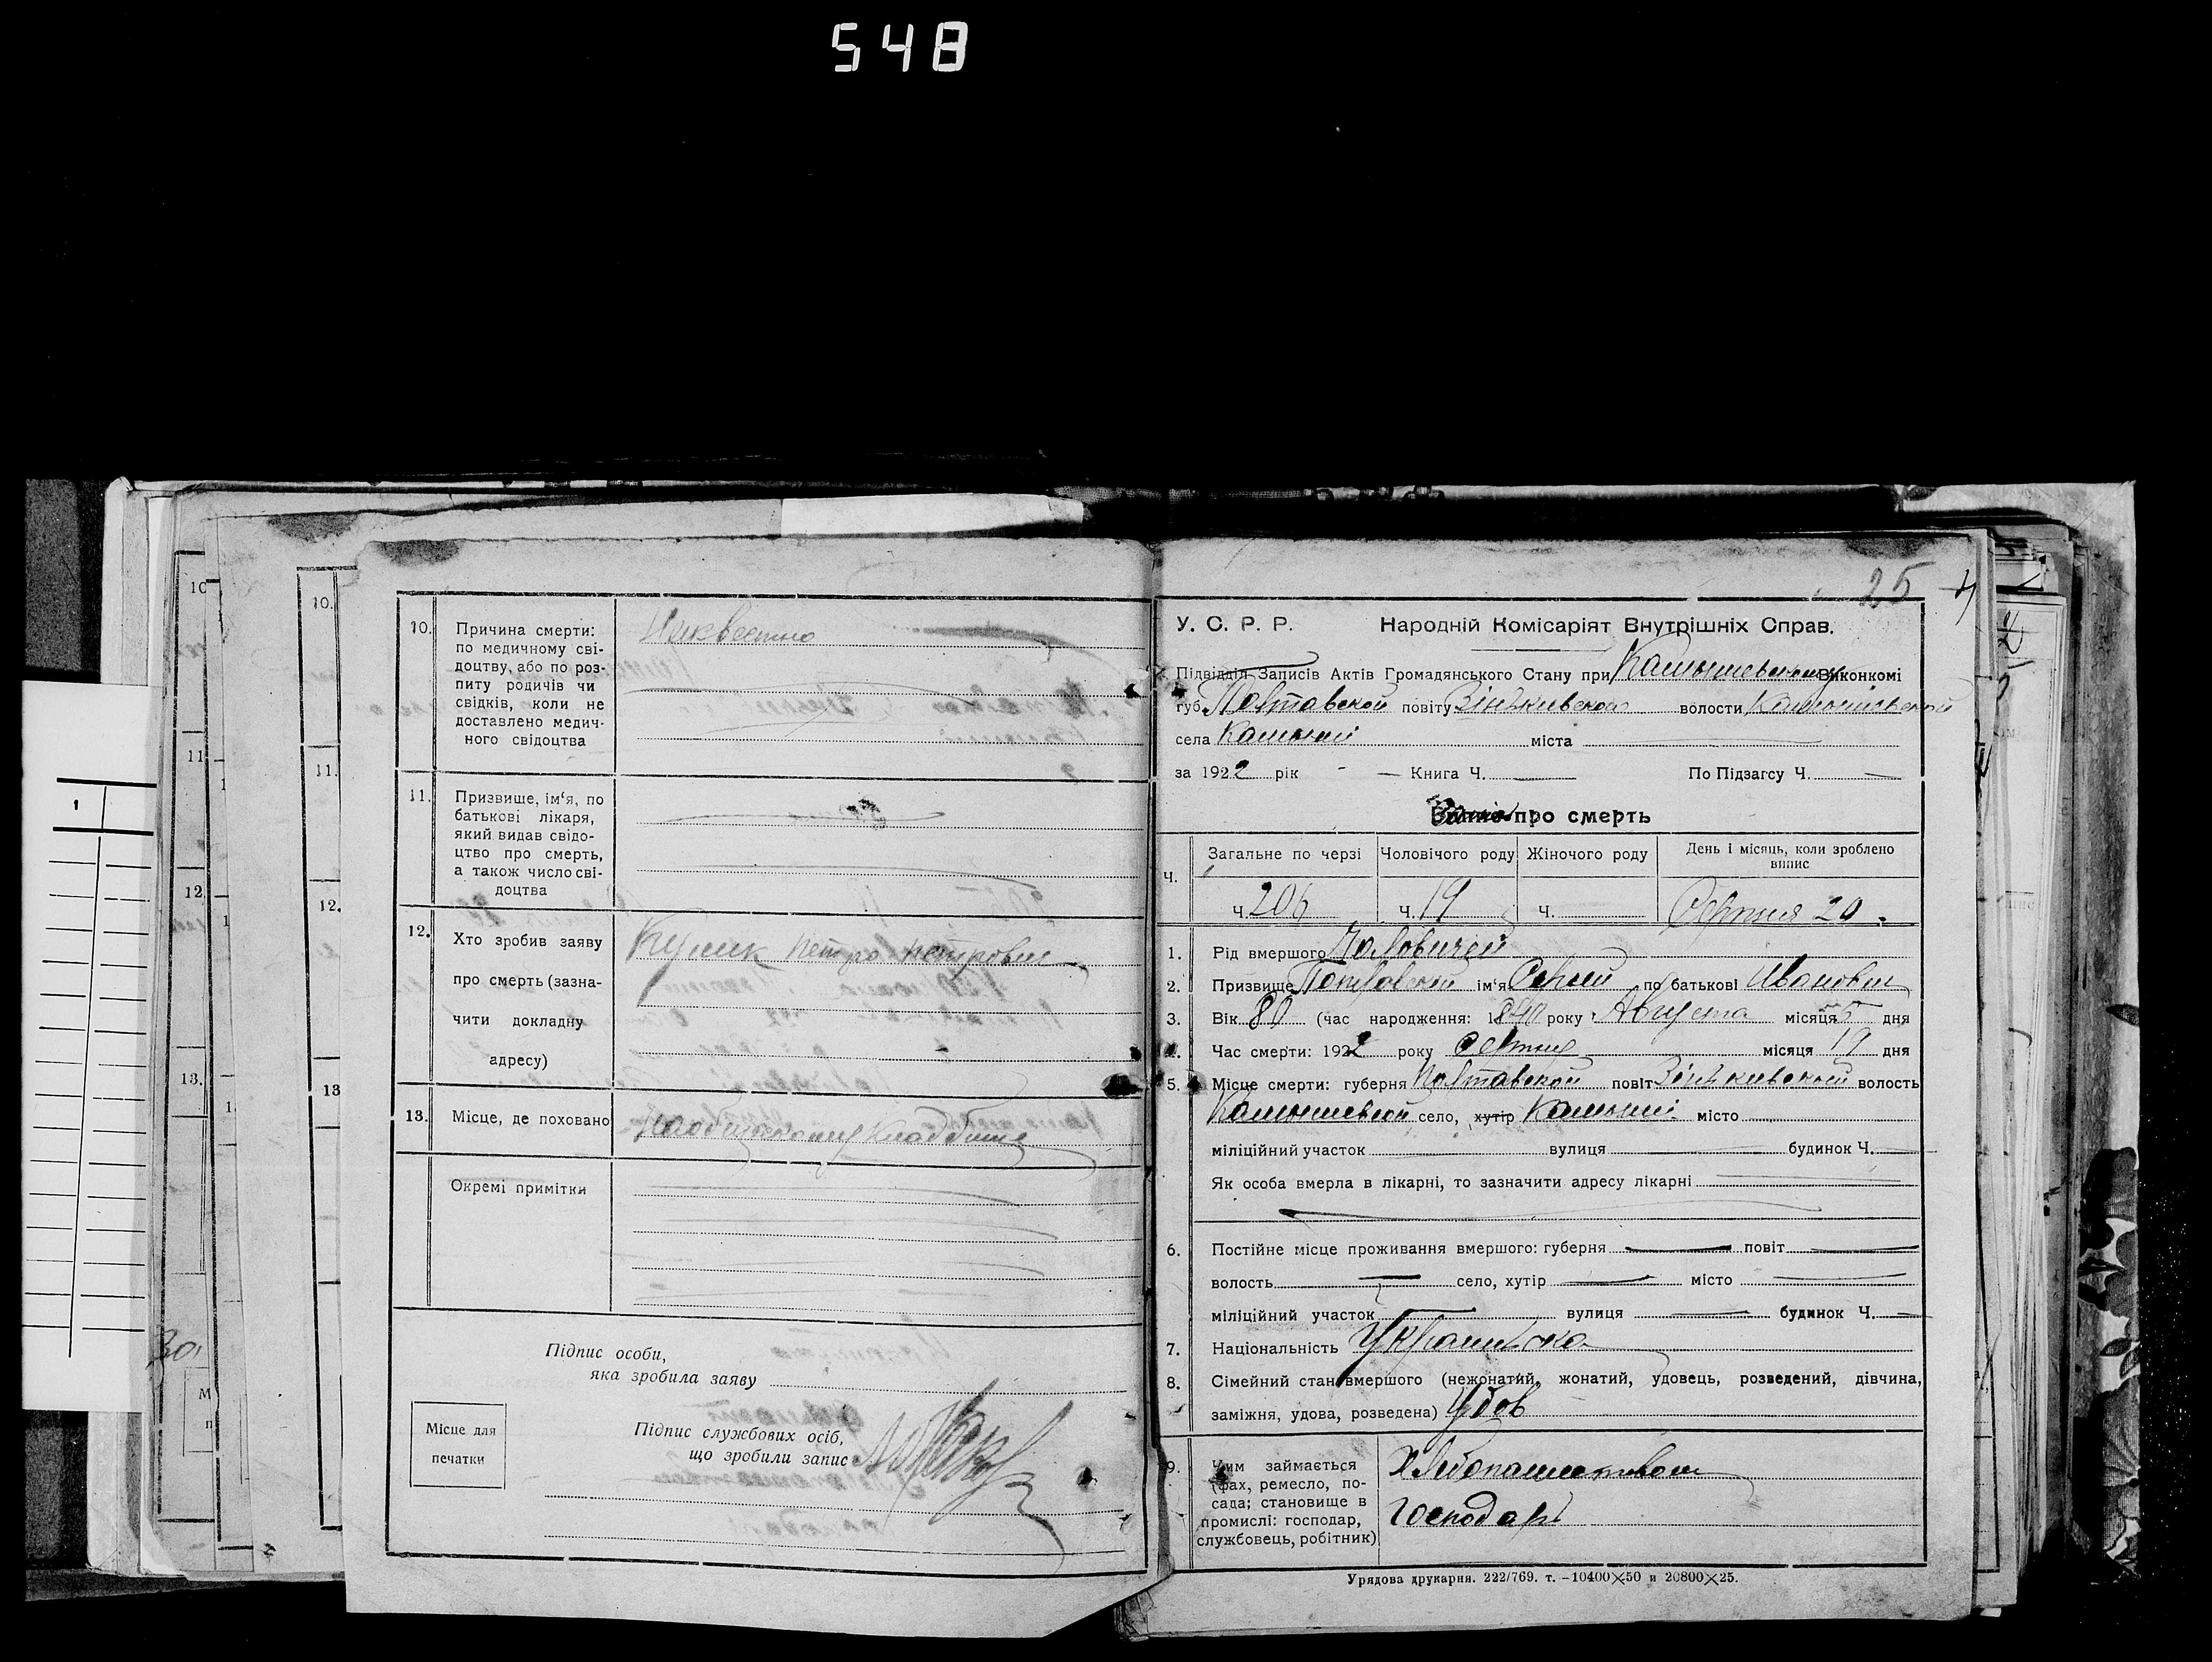 548
10.
Причина смерти:
по медичному сві-
доцтву, або по роз-
питу родичів чи
свідків, коли не
доставлено медич-
ного свідоцтва
11.
Призвище, ім‘я, по
батькові лікаря,
який видав свідо-
цтво про смерть,
а також число сві-
доцтва
12.
Хто зробив заяву
про смерть (зазна-
чити докладну
адресу)
Кулик Петро Петрович
13. Місце, де поховано
Окремі примітки
Підпис особи,
яка зробила заяву
Місце для
печатки
Підпис службових осіб,
що зробили запис
10
11
12
13.
10.
11.
12.
13
1
30
М
п
25
У. С. Р. Р. Народній Комісаріят Внутрішніх Справ.
Підвідділ Записів Актів Громадянського Стану при Виконкомі
губ. Полтавской повіту Зінькивской волости
села Камыши міста
за 1922 рік Книга Ч. По Підзагсу Ч.
про смерть
Ч.
Загальне по черзі Чоловічого роду Жіночого роду День і місяць, коли зроблено
випис
Ч. 206 Ч. 19 Ч. Серпня 20.
1. Рід вмершого
2. Призвище ім‘я Сергій по батькові Иванович
3. Вік 80 (час народження: 1840 року Августа місяця 5 дня
4. Час смерти: 1922 року Серпня місяця 19 дня
5. Місце смерти: губерня Полтавской повіт Зінькивской волость
село, хутір Камыши місто
міліційний участок вулиця будинок Ч.
Як особа вмерла в лікарні, то зазначити адресу лікарні
6. Постійне місце проживання вмершого: губерня повіт
волость село, хутір місто
міліційний участок вулиця будинок Ч.
7. Національність
8. Сімейний стан вмершого (нежонатий, жонатий, удовець, розведений, дівчина,
заміжня, удова, розведена) Удов
9. Чим займається
(фах, ремесло, по-
сада; становище в
промислі: господар,
службовець, робітник)
господарь
Урядова друкарня. 222/769. т. –10400×50 и 20800×25.